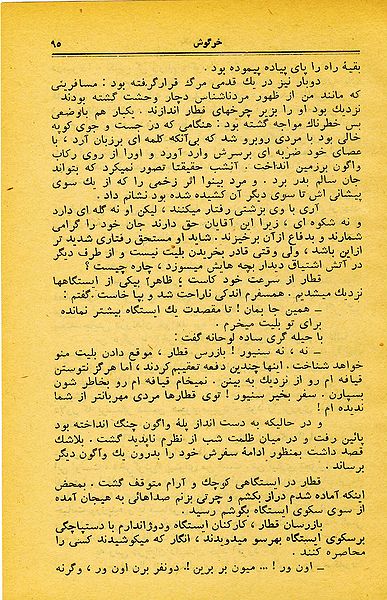 خرگوش ۹۵
بقیهٔ راه را پای پیاده پیموده بود .
دوبار نیز در یك قدمی مرگ قرارگرفته بود : مسافرینی
که مانند من از ظهور مردناشناس دچار وحشت گشته بودند
نزدیك بود او را بزیر چرخهای قطار اندازند . یکبار هم باوضعی
بس خطرناك مواجه گشته بود : هنگامی که در جست و جوی کوپه
خالی بود با مردی روبرو شد که بی‌آنکه کلمه ای برزبان آرد ، با
عصای خود ضربه ای برسرش وارد آورد و اورا از روی رکاب
واگون برزمین انداخت . آنشب حقیقتا تصور نمیکرد که بتواند
جان سالم بدر برد . و مرد بینوا اثر زخمی را که از یك سوی
پیشانی اش تا سوی دیگر آن کشیده شده بود نشانم داد .
آری با وی بزشتی رفتار میکنند ، لیکن او نه گله ای دارد
و نه شکوه ای ، زیرا این آقایان حق دارند جان خود را گرامی
شمارند و بدفاع ازآن برخیزند . شاید او مستحق رفتاری شدید تر
ازاین باشد ، ولی وقتی قادر بخریدن بلیت نیست و از طرف دیگر
در آتش اشتیاق دیدار بچه هایش میسوزد ، چاره چیست ؟
قطار از سرعت خود کاست ؛ ظاهرآ بیکی از ایستگاهها
نزدیك میشدیم . همسفرم اندکی ناراحت شد و بپا خاست . گفتم :
ـ همین جا بمان ! تا مقصدت یك ایستگاه بیشتر نمانده
برای تو بلیت میخرم .
با حیله گری ساده لوحانه گفت :
ـ نه ، نه سنیور ! بازرس قطار ، موقع دادن بلیت منو
خواهد شناخت . اینها چندین دفعه تعقیبم کردند ، اما هرگز نتوستن
قیافه ام رو از نزدیك به بینن . نمیخام قیافه ام رو بخاطر شون
بسپارن . سفر بخیر سنیور ! توی قطارها مردی مهربانتر از شما
ندیده ام !
و در حالیکه به دست انداز پلهٔ واگون چنگ انداخته بود
پائین رفت و در میان ظلمت شب از نظرم ناپدید گشت . بلاشك
قصد داشت بمنظور ادامهٔ سفرش خود را بدرون یك واگون دیگر
برساند .
قطار در ایستگاهی کوچك و آرام متوقف گشت . بمحض
اینکه آماده شدم دراز بکشم و چرتی بزنم صداهائی به هیجان آمده
از سوی سکوی ایستگاه بگوشم رسید .
بازرسان قطار ، کارکنان ایستگاه ودوژاندارم با دستپاچگی
برسکوی ایستگاه بهرسو میدویدند ، انگار که میکوشیدند کسی را
محاصره کنند .
ـ اون ور ! ... میون بر برین !. دونفر برن اون ور ، وگرنه